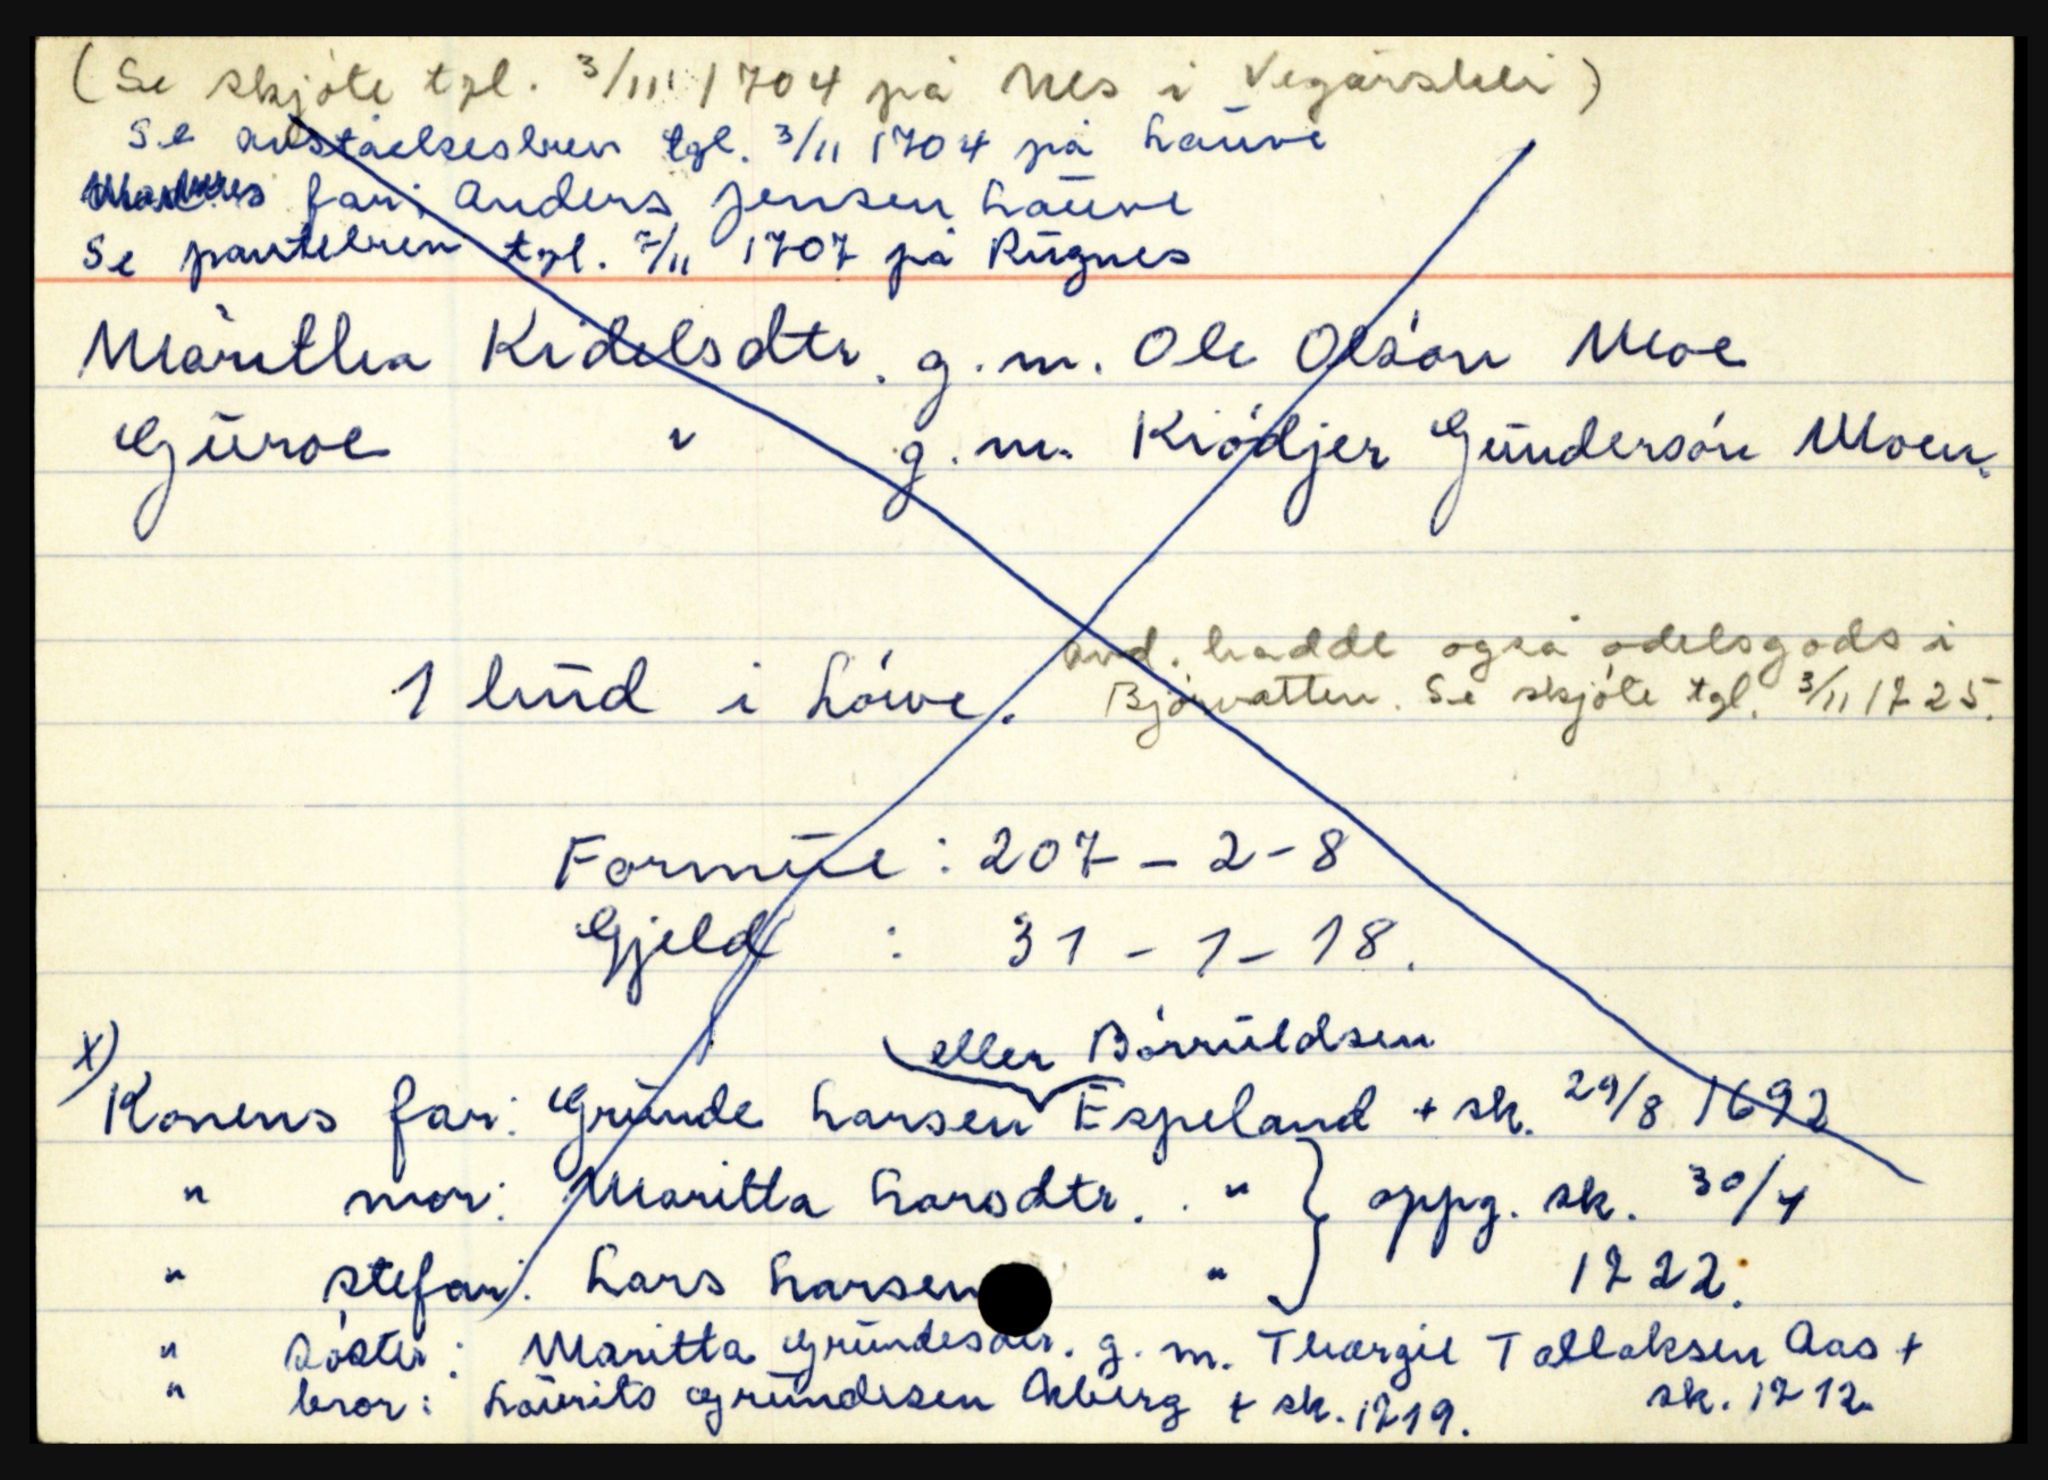 (Se skjöte tgl. 3/III 1704 på Nes i Vegårshei)
Se avståelsesbrev tgl. 3/11 1704 på Lauve
far: Anders Jensen Lauve
Se pantebrev tgl. 7/11 1707 på Rugnes
Maritha Kidelsdtr. g.m. Ole Olsön Moe
Guroe " g.m. Kiödjer Gundersön Moen.
1 hud i Löwe.
Avd. hadde også odelsgods i
Bjorvatten. Se skjöte tgl. 3/11 1725.
Formue : 207 - 2 - 8
Gjeld : 31 - 1 - 18.
eller Börruldsen
x)
Konens far: Grunde Larsen Espeland + sk. 29/8 1692
" mor: Maritta Larsdtr. " } oppg. sk. 30/4
" stefar: Lars Larsen " 1722.
" söster: Maritta Grundesdtr. g.m. Thorgie Tallaksen Aas +
sk. 1712.
" bror: Laurits Grundesen Akberg + sk. 1719.